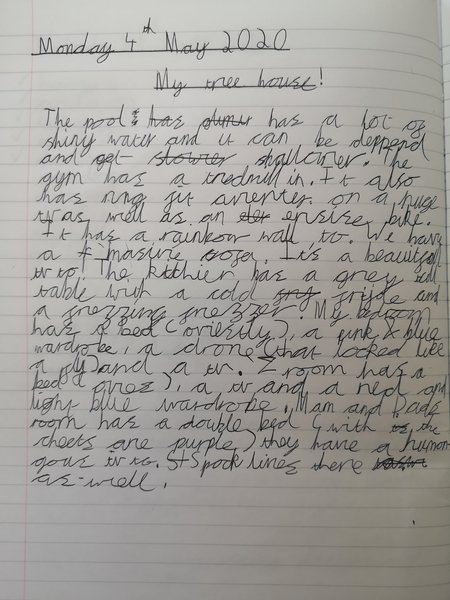 Monday 4th May 2020
My tree house!
The pool & has has a lot of
shiny water and it can be deppend
and get shollower. The
gym has a tredmill in. It also
has ring fit aventer on a huge
tv as well as an ensise bike.
It has a rainbow wall to. We have
a masive sofa. It's a beautyfull
tv to. The kitchien has a grey tall
table with a cold fridge and
a frezzing frezzer. My bedroom
has a bed (oviesily), a pink & blue
wardrobe, a drone (that looked like
a and a tv. Z room has a
bed a tv and a red and
light blue wardrobe. Mam and Dads
room has a double bed (with the
sheets are purple) they have a human
gous tv to. Spock lives there
as-well.